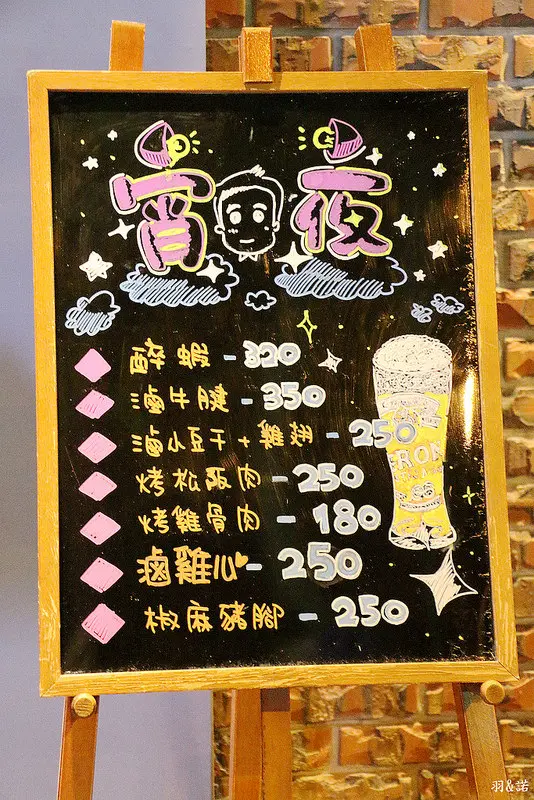 宵夜
醉蝦 - 320
滷牛腱 - 350
滷小豆干+雞翅 - 250
烤松阪肉 - 250
烤雞骨肉 - 180
滷雞心 - 250
椒麻豬腳 - 250
羽&諾